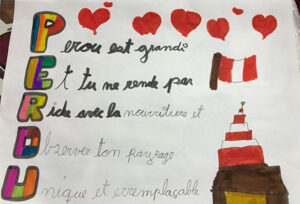 Perou est grande
Et tu ne rende par
Ride avec la nourriture et
Observer ton paysage
Unique et erremplaçable